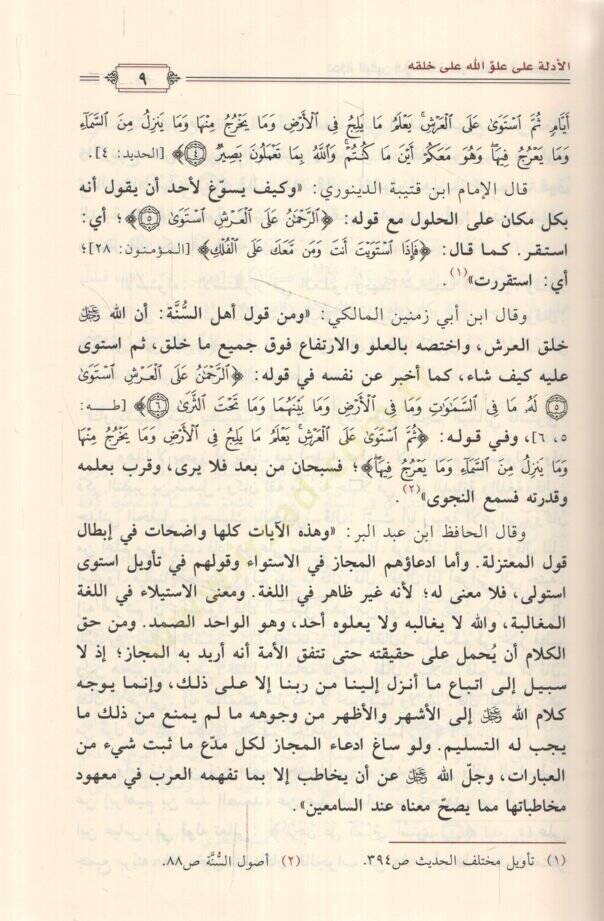 الأدلة على علوّ الله على خلقه
٩
أَيَّامٍ ثُمَّ ٱسْتَوَىٰ عَلَى ٱلْعَرْشِ يَعْلَمُ مَا يَلِجُ فِي ٱلْأَرْضِ وَمَا يَخْرُجُ مِنْهَا وَمَا يَنزِلُ مِنَ ٱلسَّمَآءِ
وَمَا يَعْرُجُ فِيهَا وَهُوَ مَعَكُمْ أَيْنَ مَا كُنتُمْ وَٱللَّهُ بِمَا تَعْمَلُونَ بَصِيرٌ ﴿٤﴾﴾ [الحديد: ٤].
قال الإمام ابن قتيبة الدينوري: «وكيف يسوّغ لأحد أن يقول أنه
بكل مكان على الحلول مع قوله: ﴿ٱلرَّحْمَٰنُ عَلَى ٱلْعَرْشِ ٱسْتَوَىٰ ﴿٥﴾﴾؛ أي:
استقر. كما قال: ﴿فَإِذَا ٱسْتَوَيْتَ أَنتَ وَمَن مَّعَكَ عَلَى ٱلْفُلْكِ﴾ [المؤمنون: ٢٨]؛
أي: استقررت»(١).
وقال ابن أبي زمنين المالكي: «ومن قول أهل السُّنَّة: أن الله ﷿
خلق العرش، واختصه بالعلو والارتفاع فوق جميع ما خلق، ثم استوى
عليه كيف شاء، كما أخبر عن نفسه في قوله: ﴿ٱلرَّحْمَٰنُ عَلَى ٱلْعَرْشِ ٱسْتَوَىٰ
﴿٥﴾ لَهُۥ مَا فِي ٱلسَّمَٰوَٰتِ وَمَا فِي ٱلْأَرْضِ وَمَا بَيْنَهُمَا وَمَا تَحْتَ ٱلثَّرَىٰ ﴿٦﴾﴾ [طه:
٥، ٦]، وفي قوله: ﴿ثُمَّ ٱسْتَوَىٰ عَلَى ٱلْعَرْشِ يَعْلَمُ مَا يَلِجُ فِي ٱلْأَرْضِ وَمَا يَخْرُجُ مِنْهَا
وَمَا يَنزِلُ مِنَ ٱلسَّمَآءِ وَمَا يَعْرُجُ فِيهَا﴾؛ فسبحان من بعد فلا يرى، وقرب بعلمه
وقدرته فسمع النجوى»(٢).
وقال الحافظ ابن عبد البر: «وهذه الآيات كلها واضحات في إبطال
قول المعتزلة. وأما ادعاؤهم المجاز في الاستواء وقولهم في تأويل استوى
استولى، فلا معنى له؛ لأنه غير ظاهر في اللغة. ومعنى الاستيلاء في اللغة
المغالبة، والله لا يغالبه ولا يعلوه أحد، وهو الواحد الصمد. ومن حق
الكلام أن يُحمل على حقيقته حتى تتفق الأمة أنه أريد به المجاز؛ إذ لا
سبيل إلى اتباع ما أنزل إلينا من ربنا إلا على ذلك، وإنما يوجه
كلام الله ﷿ إلى الأشهر والأظهر من وجوهه ما لم يمنع من ذلك ما
يجب له التسليم. ولو ساغ ادعاء المجاز لكل مدّع ما ثبت شيء من
العبارات، وجلّ الله ﷿ عن أن يخاطب إلا بما تفهمه العرب في معهود
مخاطباتها مما يصحّ معناه عند السامعين».
(١) تأويل مختلف الحديث ص٣٩٤. (٢) أصول السُّنَّة ص٨٨.